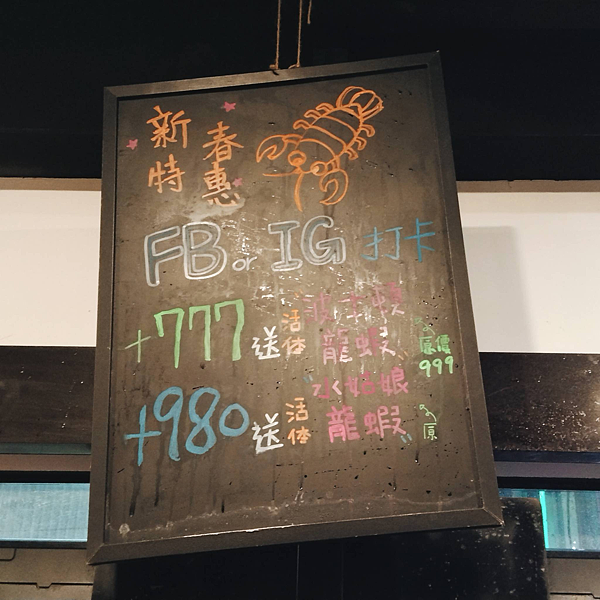 新春
特惠
FB or IG 打卡
+777 送 活体 波士頓龍蝦 原價999
+980 送 活体 "水姑娘龍蝦" 原